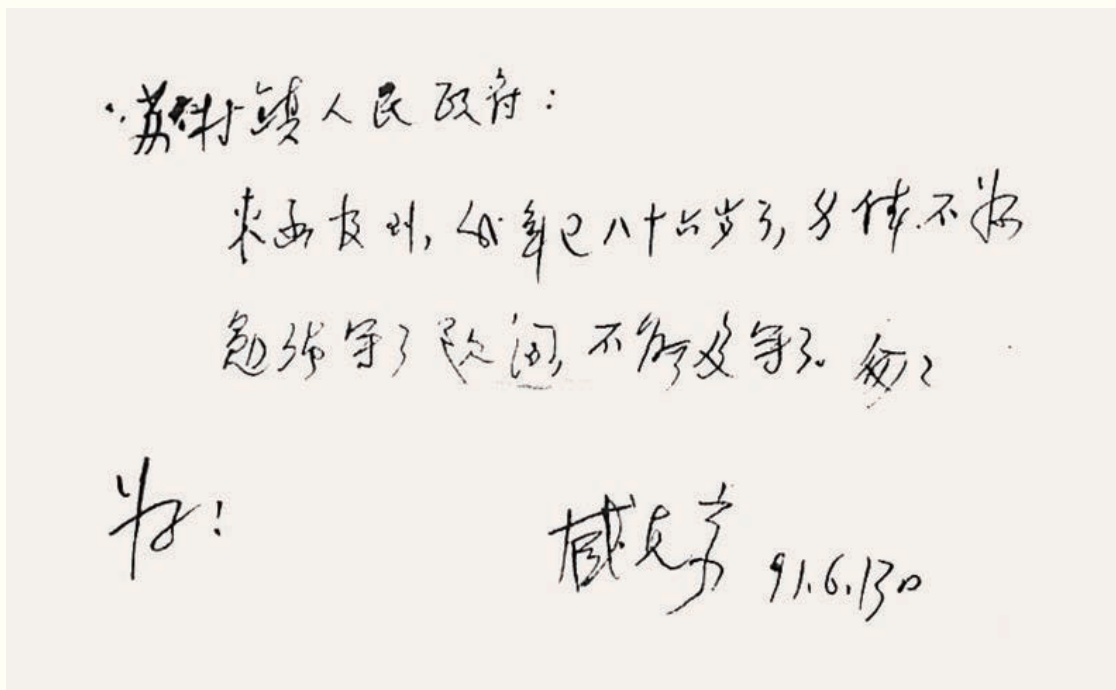 苏村镇人民政府：
来函收到，我年已八十六岁了，身体不好
勉强写了 不能多写了。匆匆
好！
臧克家 91.6.13日